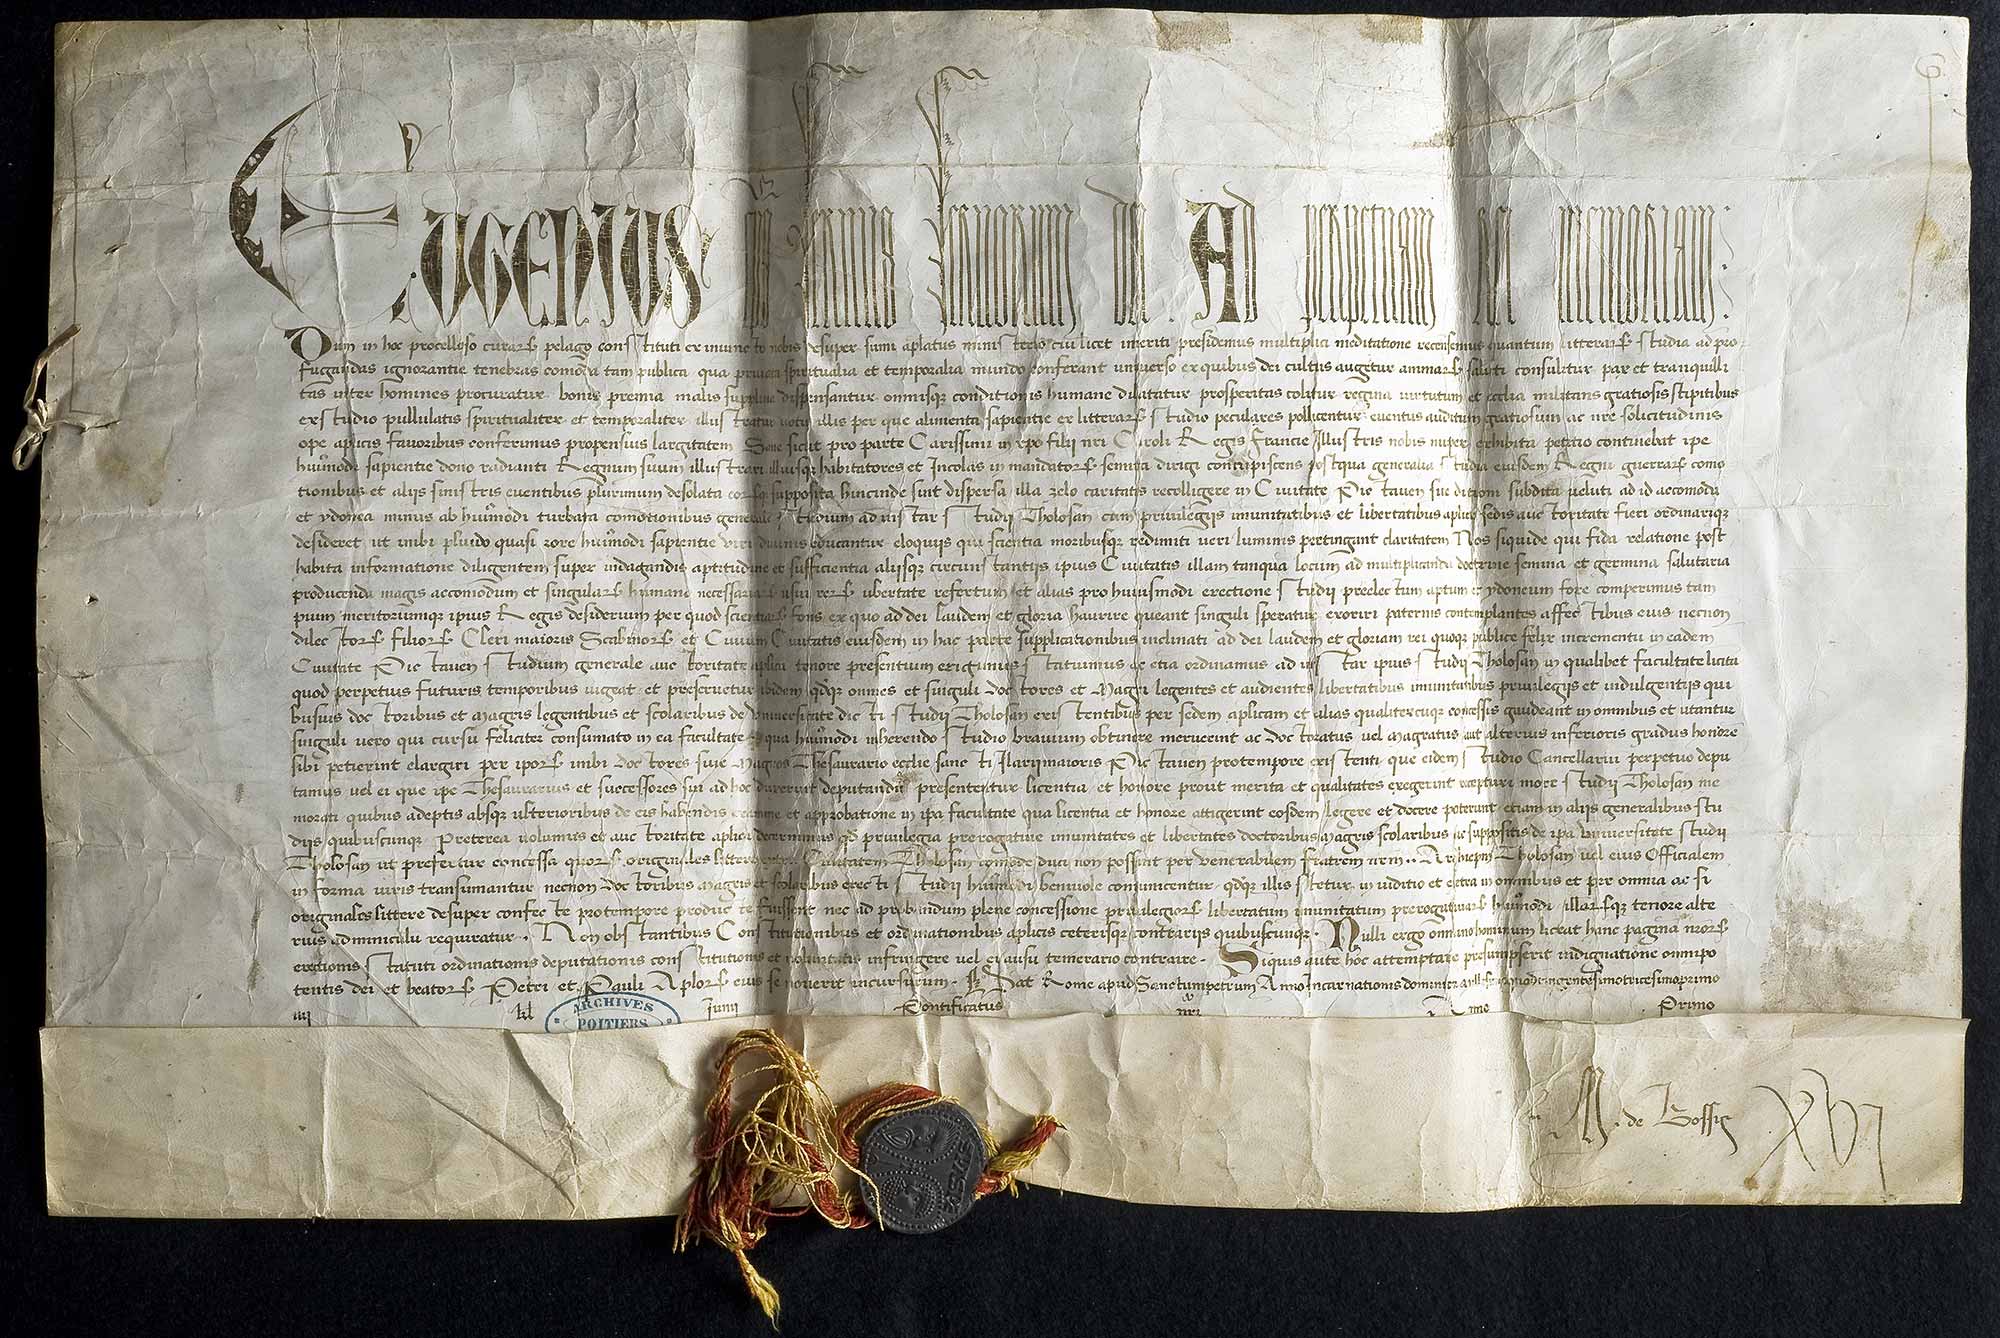 Eugenius eps servus servorum dei. Ad perpetuam rei memoriam:
Dum in hoc procelloso curarꝝ pelago constituti ex iniuncto nobis desuper sumi aplatus ministerio cui licet inmeriti presidemus multiplici meditatione recensemus quantum litterarꝝ studia ad pro
fugandas ignorantie tenebras comoda tam publica qua privata spiritualia et temporalia mundo conferant universo ex quibus dei cultus augetur animarꝝ saluti consulitur par et tranquilli
tas inter homines procuratur bonis premia malis supplicia dispensantur omnisqꝫ conditionis humane dilatatur prosperitas colitur regina virtutum et ecclia militans gratiosis stipitibus
ex studio pullulatis spiritualiter et temporaliter illustratur votis illis per que alimenta sapientie ex litterarꝝ studio peculiares pollicentur eventus auditum gratiosum ac nre solicitudinis
ope aplicis favoribus conferimus propensius largitatem Sane sicut pro parte Carissimi in xpo filii nri Caroli Regis Francie Illustris nobis nuper exhibita petitio continebat ipe
huiusmodi sapientie dono radianti Regnum suum illustrari illiusqꝫ habitatores et Incolas in mandatorꝝ semita dirigi concupiscens postqua generalia studia eiusdem Regni guerrarꝝ como
tionibus et aliis sinistris eventibus plurimum desolata eorꝝqꝫ supposita hincinde sint dispersa illa zelo caritatis recolligere in Civitate Pictaven sue ditioni subdita veluti ad id accomoda
et ydonea minus ab huiusmodi turbata comotionibus generale studium ad instar studii Tholosan cum privilegiis imunitatibus et libertatibus aplice sedis auctoritate fieri ordinariqꝫ
desideret ut inibi pluvido quasi rore huiusmodi sapientie viri divinis educantur eloquiis qui scientia moribusqꝫ redimiti veri luminis pertingant claritatem Nos siquidē qui fida relatione post
habita informatione diligentem super indagandis aptitudine et sufficientia aliisqꝫ circunstantiis ipius Civitatis illam tanqua locum ad multiplicanda doctrine semina et germina salutaria
producenda magis accomodum et singularꝝ humane necessariarꝝ usui rerꝝ ubertate refertum et alias pro huiusmodi erectione studii preelectum aptum et ydoneum fore comperimus tam
pium meritoriumqꝫ ipius Regis desiderium per quod scientiarꝝ fons ex quo ad dei laudem et gloria haurire queant singuli speratur exoriri paternis contemplantes affectibus eius necnon
dilectorꝝ filiorꝝ Cleri maioris Scabinorꝝ et Civium Civitatis eiusdem in hac parte supplicationibus inclinati ad dei laudem et gloriam rei quoqꝫ publice felix incrementū in eadem
Civitate Pictaven studium generale auctoritate aplica tenore presentium erigimus statuimus ac etia ordinamus ad instar ipius studii Tholosan in qualibet facultate licita
quod perpetuis futuris temporibus vigeat et preservetur ibidem qdqꝫ omnes et singuli doctores et Magri legentes et audientes libertatibus imunitatibus privilegiis et indulgentiis qui
busuis doctoribus et magris legentibus et scolaribus de Universitate dicti studii Tholosan existentibus per sedem aplicam et alias qualitercuqꝫ concessis gaudeant in omnibus et utantur
singuli vero qui cursu feliciter consumato in ea facultate qua huiusmodi inherendo studio bravium obtinere meruerint ac doctoratus vel magratus aut alterius inferioris gradus honorē
sibi petierint elargiri per iporꝝ inibi doctores sive Magros Thesaurario ecclie sancti Ilarii maioris Pictaven pro tempore existenti que eidem studio Cancellariū perpetuo depu
tamus vel ei que ipe Thesaurarius et successores sui ad hoc duxerint deputandū presentetur licentia et honore prout merita et qualitates exegerint recepturi more studii Tholosan me
morati quibus adeptis absqꝫ ulterioribus de eis habendis examine et approbatione in ipa facultate qua licentia et honore attigerint eosdem legere et docere poterunt etiam in aliis generalibus stu
diis quibuscunqꝫ Preterea volumus et auctoritate aplica decernimus qd privilegia prerogative imunitates et libertates doctoribus magris scolaribus ac suppositis de ipa Universitate studii
Tholosan ut prefertur concessa quorꝝ originales littere extra Civitatem Tholosan comode duci non possint per venerabilem fratrem nrm .. Archiepm Tholosan vel eius Officialem
in forma iuris transumantur necnon doctoribus magris et scolaribus erecti studii huiusmodi benivole comunicentur qdqꝫ illis stetur in iuditio et extra in omnibus et pre omnia ac si
originales littere desuper confecte pro tempore producte fuissent nec ad probandum plene concessione privilegiorꝝ libertatum imunitatum prerogativarꝝ huiusmodi illarꝝqꝫ tenore alte
rius adminiculū requiratur. Non obstantibus Constitutionibus et ordinationibus aplicis ceterisqꝫ contrariis quibuscunqꝫ. Nulli ergo omnino hominum liceat hanc pagina nrorꝝ
erectionis statuti ordinationis deputationis constitutionis et voluntatis infringere vel ei ausu temerario contraire. Siquis aute hoc attemptare presumpserit indignatione omnipo
tentis dei et beatorꝝ Petri et Pauli Aplorꝝ eius se noverit incursurum. Dat Rome apud Sanctumpetrum Anno Incarnationis dominice Millesimoquadringentesimotricesimoprimo
iiij kl Junii Pontificatus nri Anno Primo
ARCHIVES
POITIERS
M. de Bossis XVI